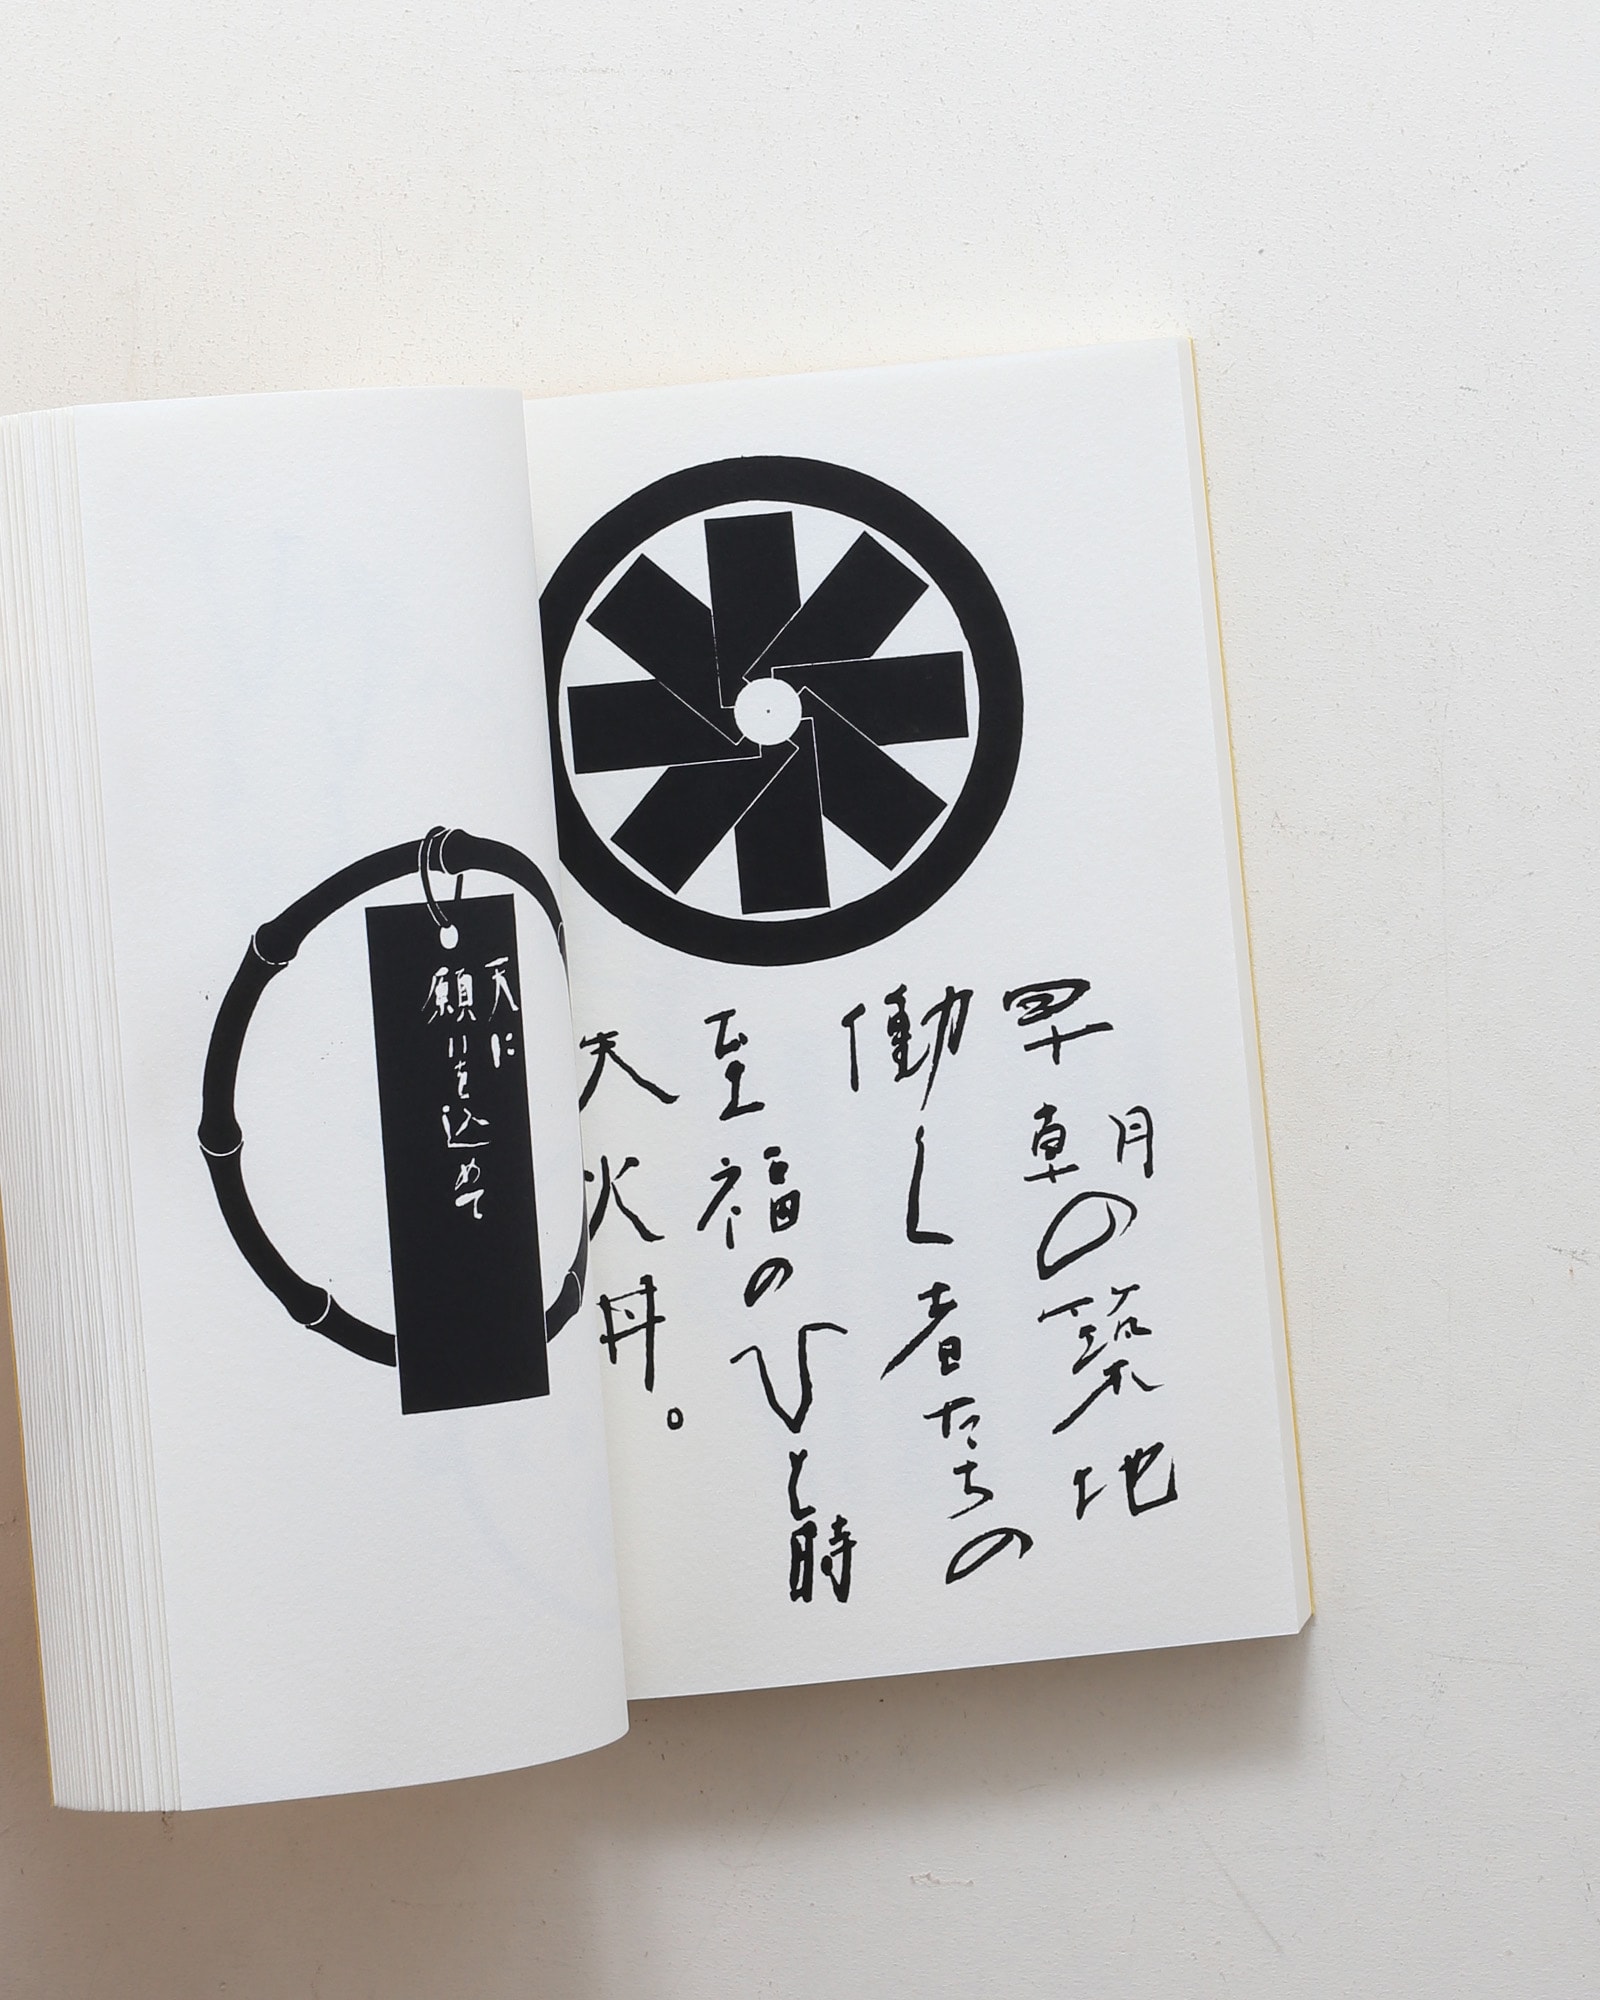 早朝の築地
働く者たちの
至福のひと時
鉄火丼。
天に
願いを込めて